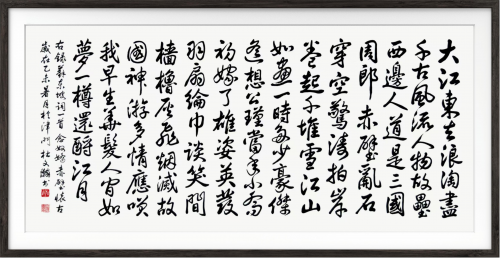 大江東去浪淘盡
千古風流人物故壘
西邊人道是三國
周郎赤壁亂石
穿空驚濤拍岸
卷起千堆雪江山
如畫一時多少豪傑
遙想公瑾當年小喬
初嫁了雄姿英發
羽扇綸巾談笑間
檣櫓灰飛烟滅故
國神游多情應咲
我早生華髮人間如
夢一樽還酹江月
右錄蘇東坡詞一首念奴嬌赤壁懷古
歲在己未暑月於津 杜文書